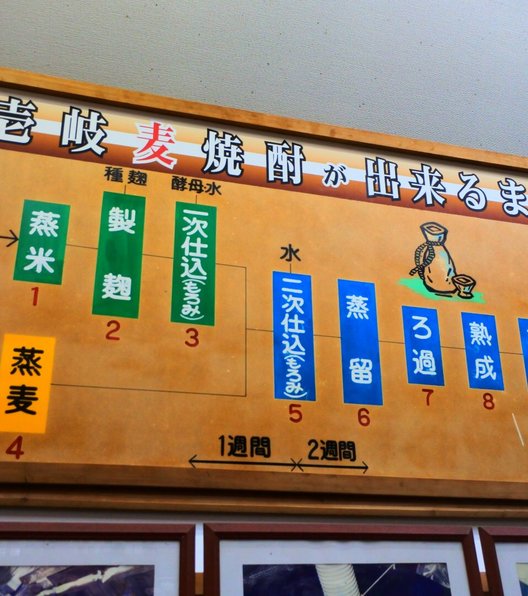 壱岐麦焼酎が出来るま
種麹
酵母・水
蒸米
1
製麹
2
一次仕込(もろみ)
3
蒸麦
4
水
二次仕込(もろみ)
5
蒸留
6
ろ過
7
熟成
8
1週間
2週間